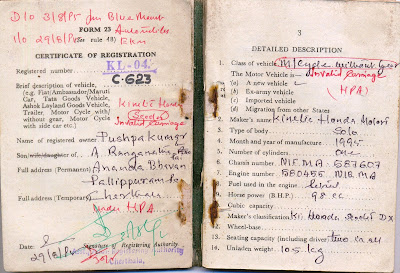 D/o 3/8/95 for Blue Mount
FORM 23 Automobiles
I/o 29/8/95 (See rule 48) Ekm
CERTIFICATE OF REGISTRATION
Registered number KL-04.
C-623
Brief description of vehicle,
(e.g. Fiat/Ambassador/Maruti
Car, Tata Goods Vehicle,
Ashok Leyland Goods Vehicle,
Trailer, Motor Cycle with/
without gear, Motor Cycle
with side car etc.)
Kinetic Honda
Invalid carriage
Name of registered owner Pushpakumar
Son/wife/daughter of A. Ranganatha
Full address (Permanent) Ananda Bhavan
Pallippuram
Full address (Temporary) Cherthala
under HPA
Date: 29/8/95
Signature of Registering Authority
3
DETAILED DESCRIPTION
1. Class of vehicle M/Cycle without Gear
The Motor Vehicle is - Invalid carriage
(a) A new vehicle
(b) Ex-army vehicle (HPA)
(c) Imported vehicle
(d) Migration from other States
2. Maker's name Kinetic Honda Motors
3. Type of body Solo
4. Month and year of manufacture 1995
5. Number of cylinders one
6. Chassis number
7. Engine number
8. Fuel used in the engine Petrol
9. Horse power (B.H.P.) 98 cc
10. Cubic capacity
11. Maker's classification Kin Honda DX
12. Wheel-base
13. Seating capacity (including driver) two in all
14. Unladen weight